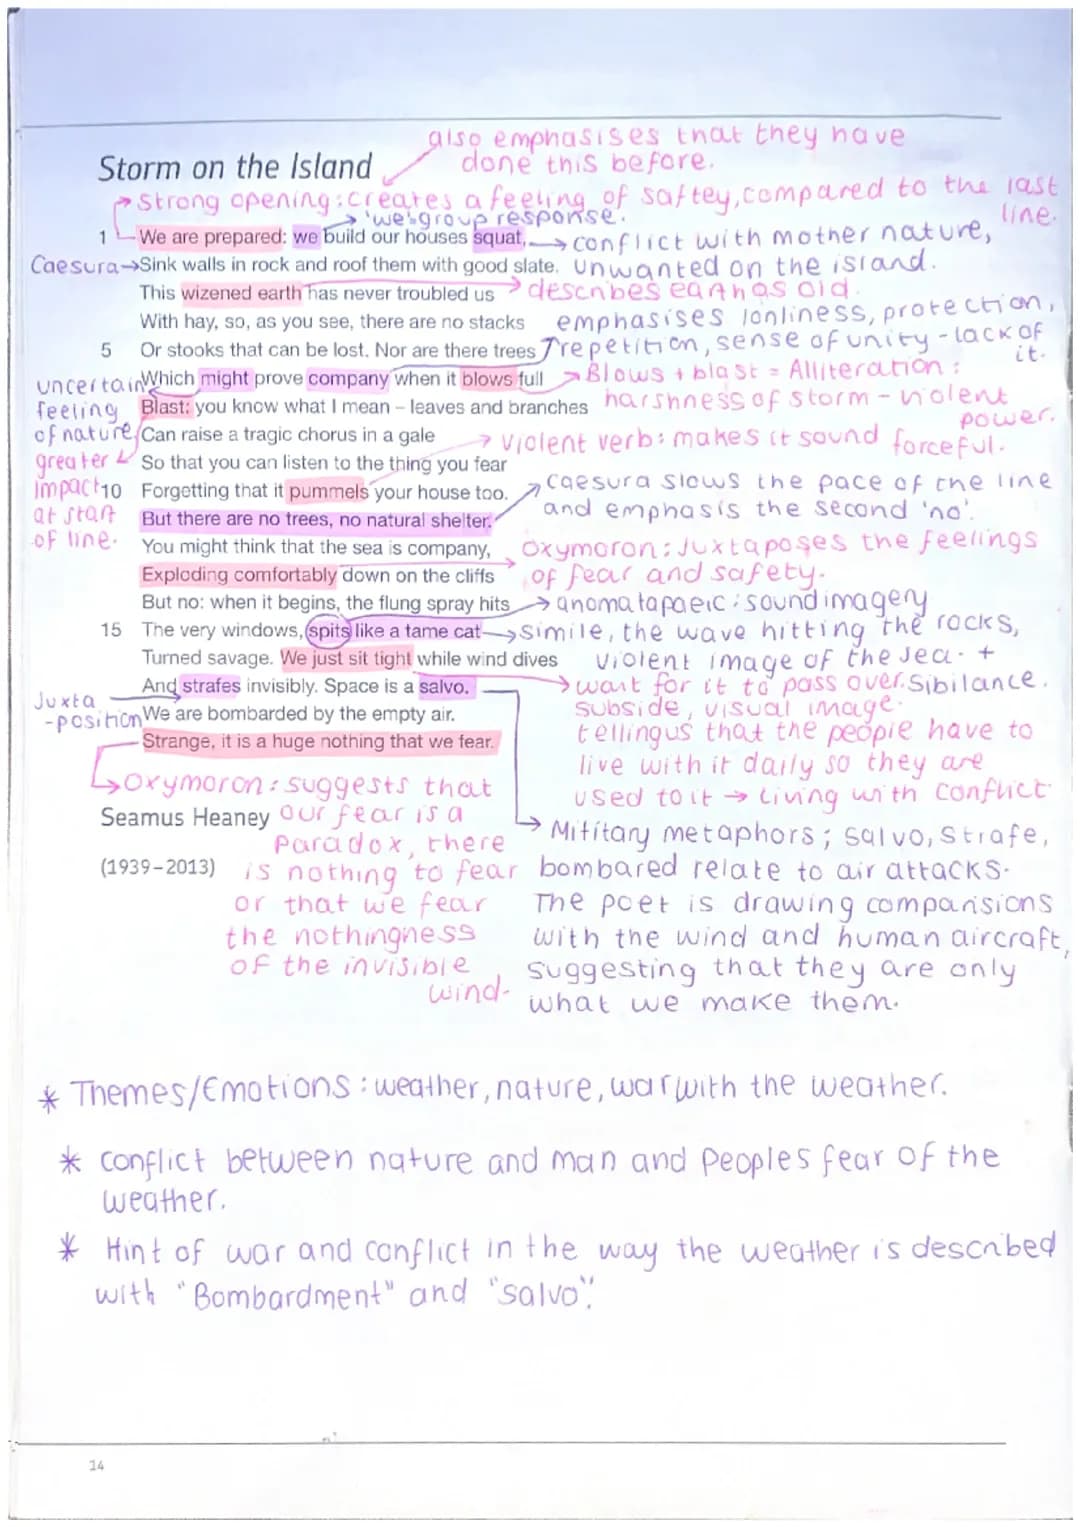 also emphasises that they have
done this before.
Storm on the Island
Strong opening: creates a feeling of saftey, compared to the last
line.
'we' group response.
1 We are prepared: we build our houses squat,
conflict with mother nature,
Caesura
Sink walls in rock and roof them with good slate.
unwanted on the island.
This wizened earth has never troubled us
describes earth as old.
With hay, so, as you see, there are no stacks
emphasises lonliness, protection,
5 Or stooks that can be lost. Nor are there trees
repetition, sense of unity - lack of
it.
Which might prove company when it blows full
Blows + blast = Alliteration:
uncertain
feeling
of nature
Blast: you know what I mean – leaves and branches
harshness of storm - violent
power.
Can raise a tragic chorus in a gale
violent verb: makes it sound forceful.
So that you can listen to the thing you fear
greater
impact
at start
of line.
10 Forgetting that it pummels your house too.
caesura slows the pace of the line
and emphasis the second 'no'.
But there are no trees, no natural shelter.
You might think that the sea is company,
Oxymoron: Juxtaposes the feelings
of fear and safety.
Exploding comfortably down on the cliffs
But no: when it begins, the flung spray hits
anomatapaeic: sound imagery
15 The very windows, spits like a tame cat
Simile, the wave hitting the rocks,
Turned savage. We just sit tight while wind dives
violent image of the sea. +
Sibilance.
And strafes invisibly. Space is a salvo.
wait for it to pass over.
subside, visual image.
Juxta
-position
We are bombarded by the empty air.
telling us that the people have to
Strange, it is a huge nothing that we fear.
live with it daily so they are
used to it → Living with conflict
Oxymoron: suggests that
our fear is a
Paradox, there
is nothing to fear
or that we fear
the nothingness
of the invisible
wind.
Seamus Heaney
(1939–2013)
Mifitary metaphors; salvo, Strafe,
bombared relate to air attacks.
The poet is drawing comparisions
with the wind and human aircraft,
suggesting that they are only
what we make them.
* Themes/Emotions: weather, nature, war with the weather.
* Conflict between nature and man and Peoples fear of the
weather.
* Hint of war and conflict in the way the weather is described
with "Bombardment" and "salvo".
14